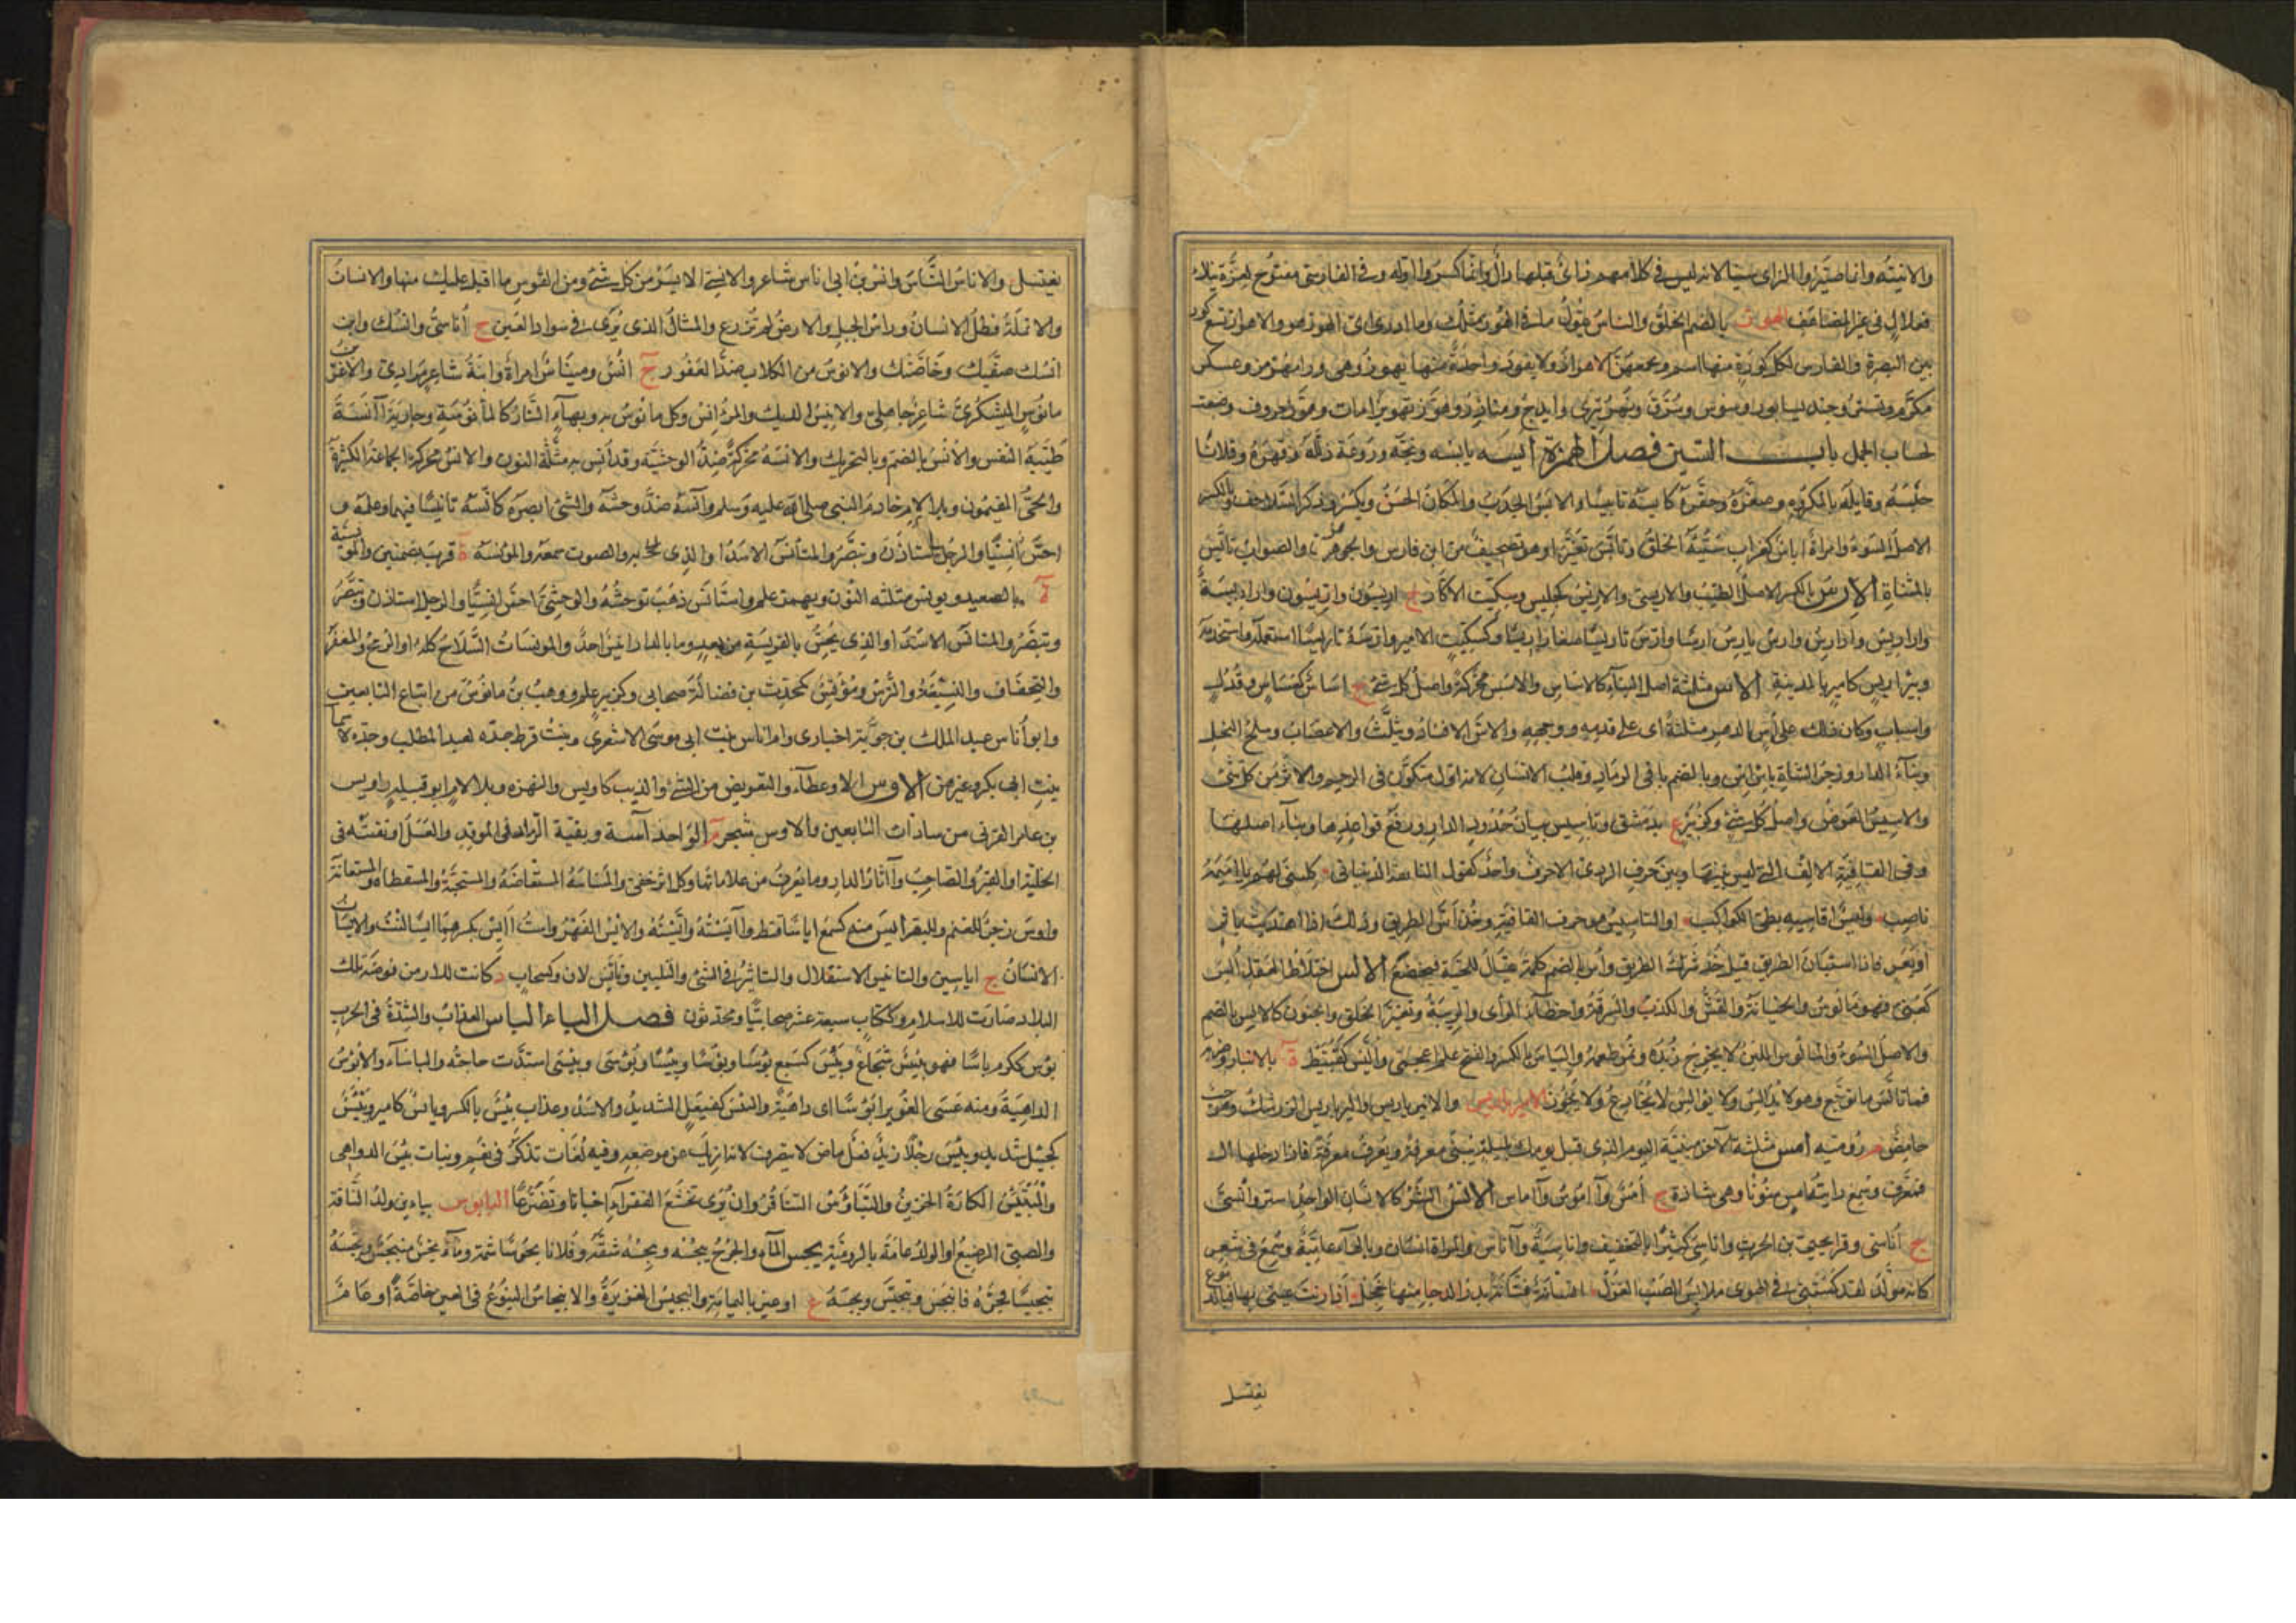 والابنيه وانما صيروا الزاى سينا لانه ليس فى كلامهم زاى قبلها دال وانما كسروا اوله وفى الفارسى مفتوح لعزة بناء
فعلال فى غير المضاعف الهوز بالضم الخلق والناس تقول ما فى الهوز مثلك وما ادرى اى الهوز هو والاهواز تسع كور
بين البصرة والفارس لكل كورة منها اسم ويجمعهن الاهواز ولا يفرد واحدة منها بهوز وهى ورامهرمز وعسكر
مكرم وتستر وجند يسابور وسوس وسرق ونهر تيرى وايدج ومناذر وهوز تهويزا مات وهوز حروف وضعت
لحساب الجمل باب السين فصل الهمزة ابسه يابسه وبخه وروعه ذلله وقهره وفلانا
حبسه وقابله بالمكروه وصغره وحقره كابسه تابيسا والابس الجدب والمكان الخشن ويكسر وذكر السلاحف وبالكسر
الاصل السوء وامراة اباس كغراب سيئة الخلق وتابس تغير او هو تصحيف من ابن فارس والجوهرى والصواب تايس
بالمثناة الارس بالكسر الاصل الطيب والاريسى والاريس كجليس وسكيت الاكار ج اريسون واريسون وارارسة
واراريس وارارس وارس يارس ارسا وارس تاريسا صار اريسا وكسكيت الامير وارسه تاريسا استعمله واستخدمه
وبئر اريس كامير بالمدينة الاس مثلثة اصل البناء كالاساس والاسس محركة واصل كل شئ ج اساس كعساس وقذل
واسباب وكان ذلك على اس الدهر مثلثة اى على قدمه ووجهه والاس الافساد ويثلث والاغضاب وسلح النحل
وبناء الدار وزجر الشاة باس اس وبالضم باقى الرماد وقلب الانسان لانه اول متكون فى الرحم والاثر من كل شئ
والاسيس العوض واصل كل شئ وكزبير ع بدمشق وتاسيس بيان حدود الدار ورفع قواعدها وبناء اصلها
وفى القافية الالف التى ليس بينها وبين حرف الروى الا حرف واحد كقول النابغة الذبيانى كلينى لهم يا اميمة
ناصب وليل اقاسيه بطئ الكواكب او التاسيس هو حرف القافية وخذ اس الطريق وذلك اذا اهتديت باثر
او بعر فاذا استبان الطريق قيل خذ شرك الطريق واس بالضم كلمة تقال للحية فيخضع الالس اختلاط العقل الس
كعنى فهو مالوس والخيانة والغش والكذب والسرقة واخطاء الراى والريبة وتغير الخلق والجنون كالالس بالضم
والاصل السوء والمالوس اللبن لا يخرج زبده ويمر طعمه والياس بالكسر والفتح علم اعجمى واليس كقبيط ة بالانبار وضربه
فما تالس ما توجع وهو لا يدالس ولا يؤالس لا يخادع ولا يخون الامير باريس والانبر باريس والبرباريس الزرشك وهو حب
حامض م رومية امس مثلثة الآخر مبنية اليوم الذى قبل يومك بليلة يبنى معرفة ويعرب معرفة فاذا دخلها ال
فمعرب وسمع رايته امس منونا وهى شاذة ج آمس وآموس وآماس الانس البشر كالانسان الواحد انس وانسى
ج اناسى وقرا يحيى بن الحرث واناسى كثيرا بالتخفيف واناسية وآناس والمراة انسان وبالهاء عامية وسمع فى شعر
كانه مولد لقد كستنى فى الهوى ملابس الصب الغزل انسانة فتانة بدر الدجا منها خجل اذا زنت عينى بها فبالدموع
يغتسل
يغتسل والاناس الناس وانس بن ابى اناس شاعر والانسى الايسر من كل شئ ومن القوس ما اقبل عليك منها والانسان
والانملة وظل الانسان وراس الجبل والارض لم تزرع والمثال الذى يرى فى سواد العين ج اناسى وانسك وابن
انسك صفيك وخاصتك والانوس من الكلاب ضد العقور ج انس ومئناس امراة وابنه شاعر مرادى والاغر بن
مانوس اليشكرى شاعر جاهلى والانيس الديك والمؤانس وكل مانوس به وبهاء النار كالمانوسة وجارية آنسة
طيبة النفس والانس بالضم وبالتحريك والانسة محركة ضد الوحشة وقد انس به مثلثة النون والانس محركة الجماعة الكثيرة
والحى المقيمون وبلا لام خادم النبى صلى الله عليه وسلم وآنسه ضد وحشه والشئ ابصره كانسه تانيسا فيهما وعلمه و
احس انسيا والرجل استاذن وتبصر والمتانس الاسد او الذى به والصوت سمعه والمؤنسة ة قرب بضمتين والمونسية
ة بالصعيد ويونس مثلثة النون ويهمز علم واستانس ذهب توحشه والوحشى احس انسيا والرجل استاذن وتبصر
وتبصر والمتانس الاسد او الذى يحس بالفريسة من بعيد وما بالدار انيس احد والمونسات السلاح كله او الرمح والمغفر
والتجفاف والتسبغة والترس ومؤنس كمحدث بن فضالة صحابى وكزبير علم ووهب بن مانوس من اتباع التابعين
وابو اناس عبد الملك بن جوية اخبارى وام اناس بنت ابى موسى الاشعرى وبنت قرط جدة لعبد المطلب وجدة لاسما
بنت ابى بكر وغيرهن الاوس الاوعطاء والتعويض من الشئ والذيب كاويس والنهزة وبلا لام ابو قبيلة واويس
بن عامر القرنى من سادات التابعين والاوس شجر م الواحدة آسة وبقية الرماد فى الموقد والعسل او نقيته فى
الخلية او القبر والصاحب وآثار الدار وما يعرف من علاماتها وكل اثر خفى والمستاسة المستعاضة والمستصحبة والمستعطاة والمستعانة
واوس زجر للغنم والبقر ايس منه كسمع اياسا قنط وآايسته وايسته والايس القهر واست اايس بكسرهما ايسا لنت والايسان
الانسان ج اياسين والتاييس الاستقلال والتاثير فى الشئ والتليين وتايس لان وكسحاب د كانت للارمن فرضة تلك
البلاد صارت للاسلام وككتاب سبعة عشر صحابيا ومحدثون فصل الباء الباس العذاب والشدة فى الحرب
بؤس ككرم باسا فهو بئيس شجاع وبئس كسمع بؤسا وبؤسا وبئيسا وبؤسى وبئسى اشتدت حاجته والباساء والابؤس
الداهية ومنه عسى الغوير ابؤسا اى داهية والبئس كفيعل الشديد والاسد وعذاب بئس بالكسر وبئيس كامير وبيئس
كجيئل شديد وبئس رجلا زيد فعل ماض لا يتصرف لانه ازيل عن موضعه وفيه لغات تذكر فى نعم وبنات بئس الدواهى
والمبتئس الكاره الحزين والتباؤس التفاقر وان يرى تخشع الفقراء اخباتا وتضرعا البابوس بباءين ولد الناقة
والصبى الرضيع او الولد عامة بالرومية بجس الماء والجرح يبجسه ويبجسه شقه وفلانا بجوسا شتمه وماء بجس منبجس وبجسه
تبجيسا فجره فانبجس وتبجس وبجسة ع او عين باليمامة والبجيس الغزيرة والانبجاس النبوع فى العين خاصة او عام